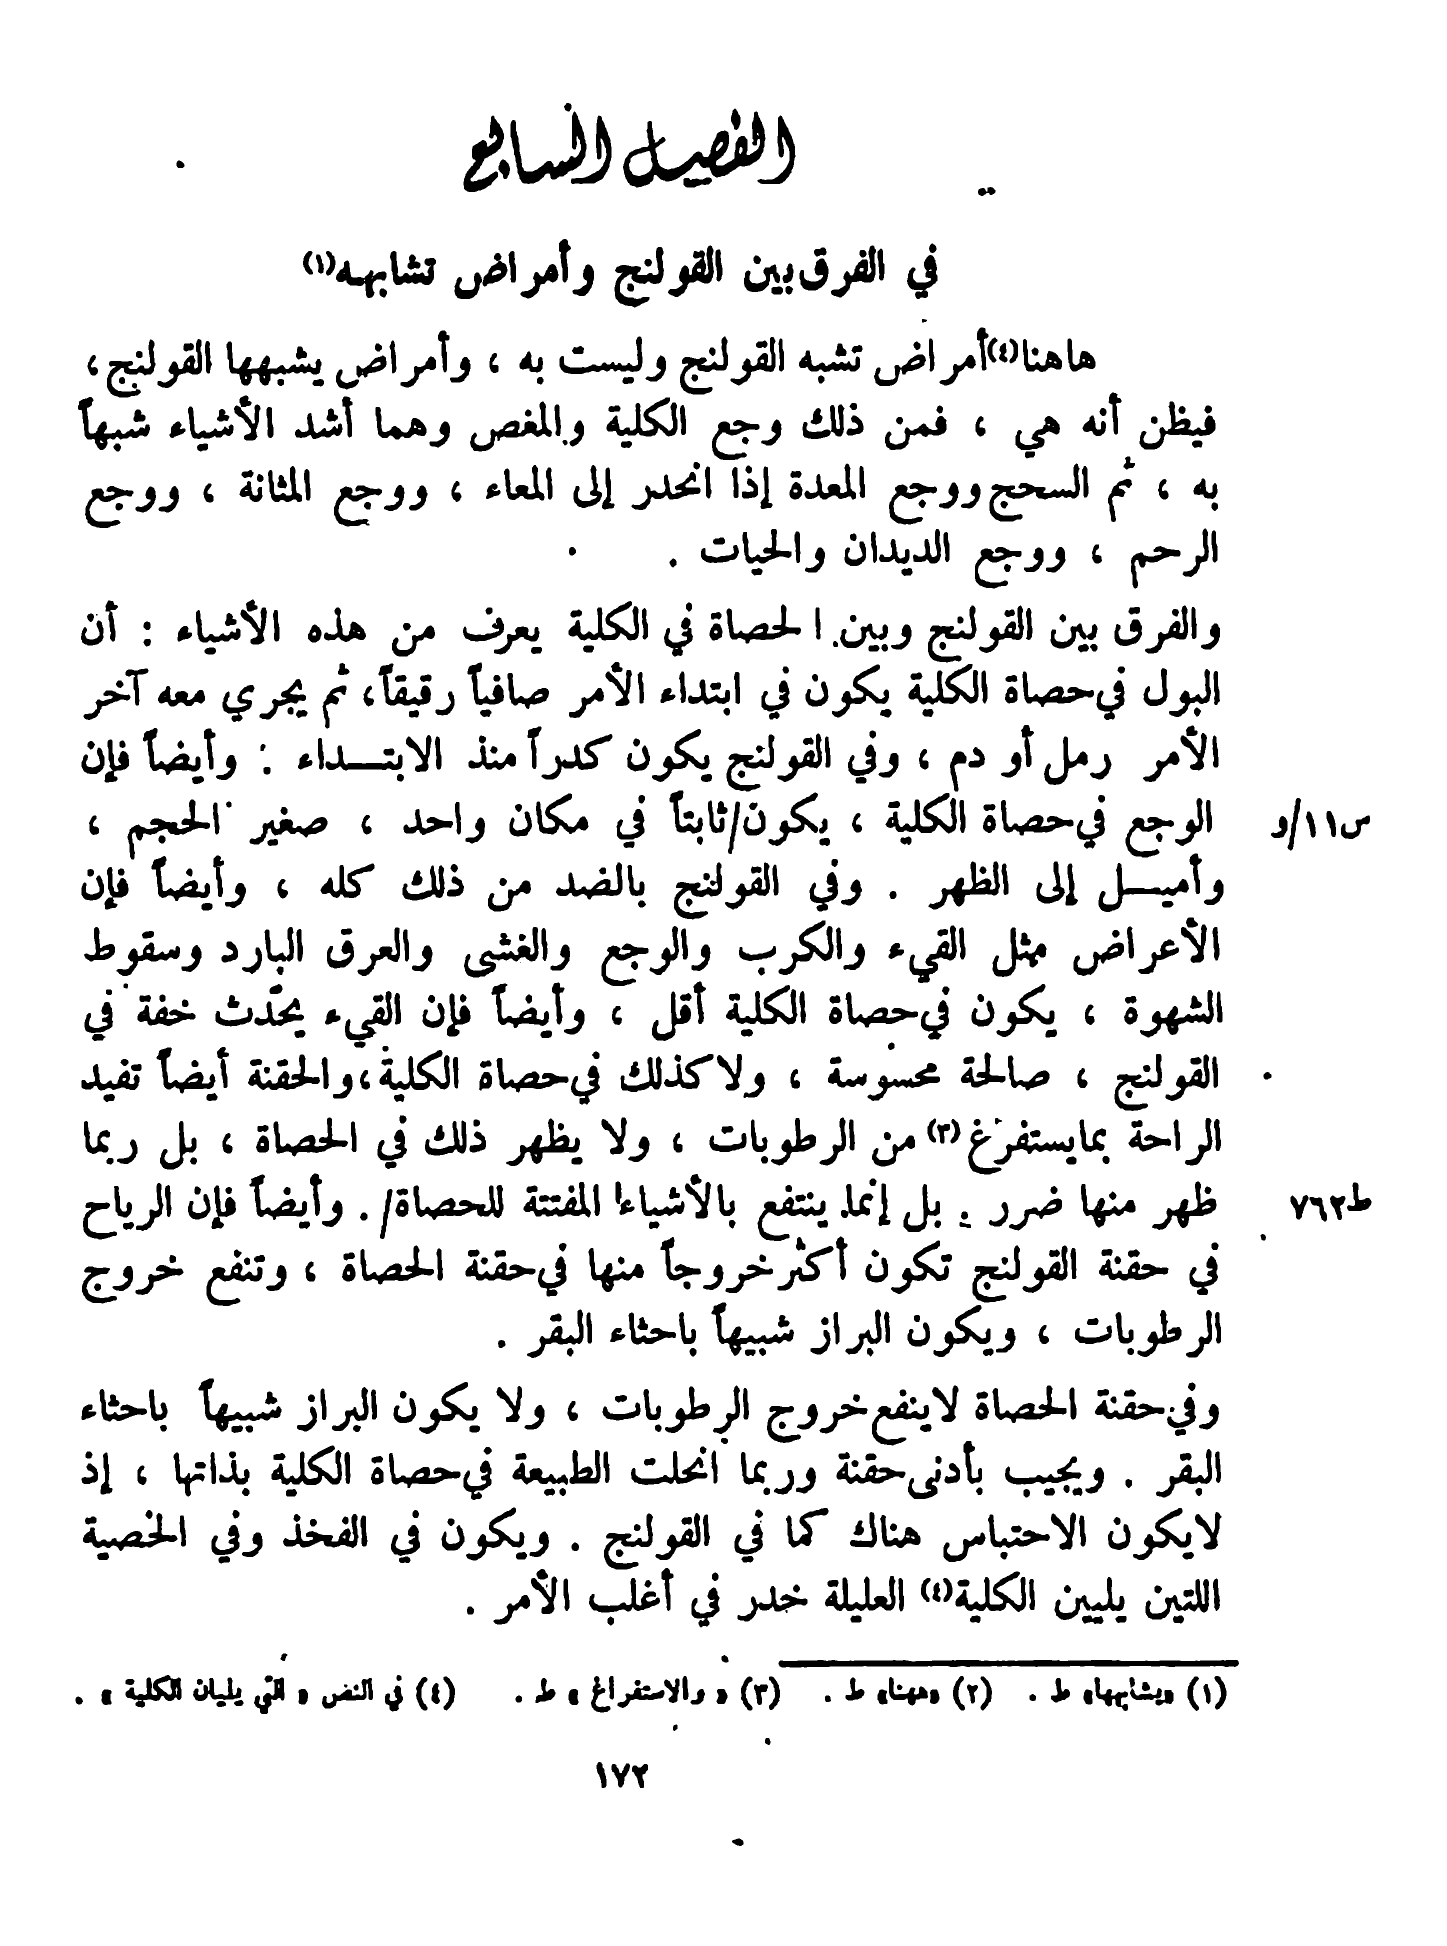 الفصل السابع
في الفرق بين القولنج وأمراض تشابهه(١)
هاهنا(٤)أمراض تشبه القولنج وليست به ، وأمراض يشبهها القولنج،
فيظن أنه هي ، فمن ذلك وجع الكلية والمغص وهما أشد الأشياء شبهاً
به ، ثم السحج ووجع المعدة إذا انحدر إلى المعاء ، ووجع المثانة ، ووجع
الرحم ، ووجع الديدان والحيات .
والفرق بين القولنج وبين الحصاة في الكلية يعرف من هذه الأشياء : أن
البول في حصاة الكلية يكون في ابتداء الأمر صافياً رقيقاً، ثم يجري معه آخر
الأمر رمل أو دم ، وفي القولنج يكون كدراً منذ الابتـــداء : وأيضاً فإن
الوجع في حصاة الكلية ، يكون/ثابتاً في مكان واحد ، صغير الحجم ، س١١/و
وأميـــل إلى الظهر . وفي القولنج بالضد من ذلك كله ، وأيضاً فإن
الأعراض مثل القيء والكرب والوجع والغشى والعرق البارد وسقوط
الشهوة ، يكون في حصاة الكلية أقل ، وأيضاً فإن القيء يحّدث خفة في
القولنج ، صالحة محسوسة ، ولا كذلك في حصاة الكلية،والحقنة أيضاً تفيد
الراحة بمايستفرغ(٣) من الرطوبات ، ولا يظهر ذلك في الحصاة ، بل ربما
ظهر منها ضرر . بل إنما ينتفع بالأشياء المفتتة للحصاة/ . وأيضاً فإن الرياح ط٧٦٢
في حقنة القولنج تكون أكثر خروجاً منها في حقنة الحصاة ، وتنفع خروج
الرطوبات ، ويكون البراز شبيهاً باحثاء البقر .
وفي حقنة الحصاة لاينفع خروج الرطوبات ، ولا يكون البراز شبيهاً باحثاء
البقر . ويجيب بأدنى حقنة وربما انحلت الطبيعة في حصاة الكلية بذاتها ، إذ
لايكون الاحتباس هناك كما في القولنج . ويكون في الفخذ وفي الخصية
اللتين يليين الكلية(٤) العليلة خدر في أغلب الأمر .
(١) «يشابهها» ط . (٢) «ههنا» ط . (٣) « والاستفراغ » ط . (٤) في النص « التي يليان الكلية » .
١٧٢